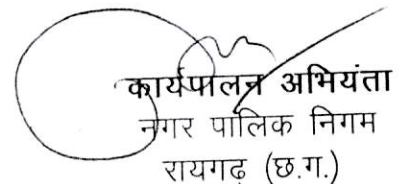 कार्यपालन अभियंता
नगर पालिक निगम
रायगढ़ (छ.ग.)